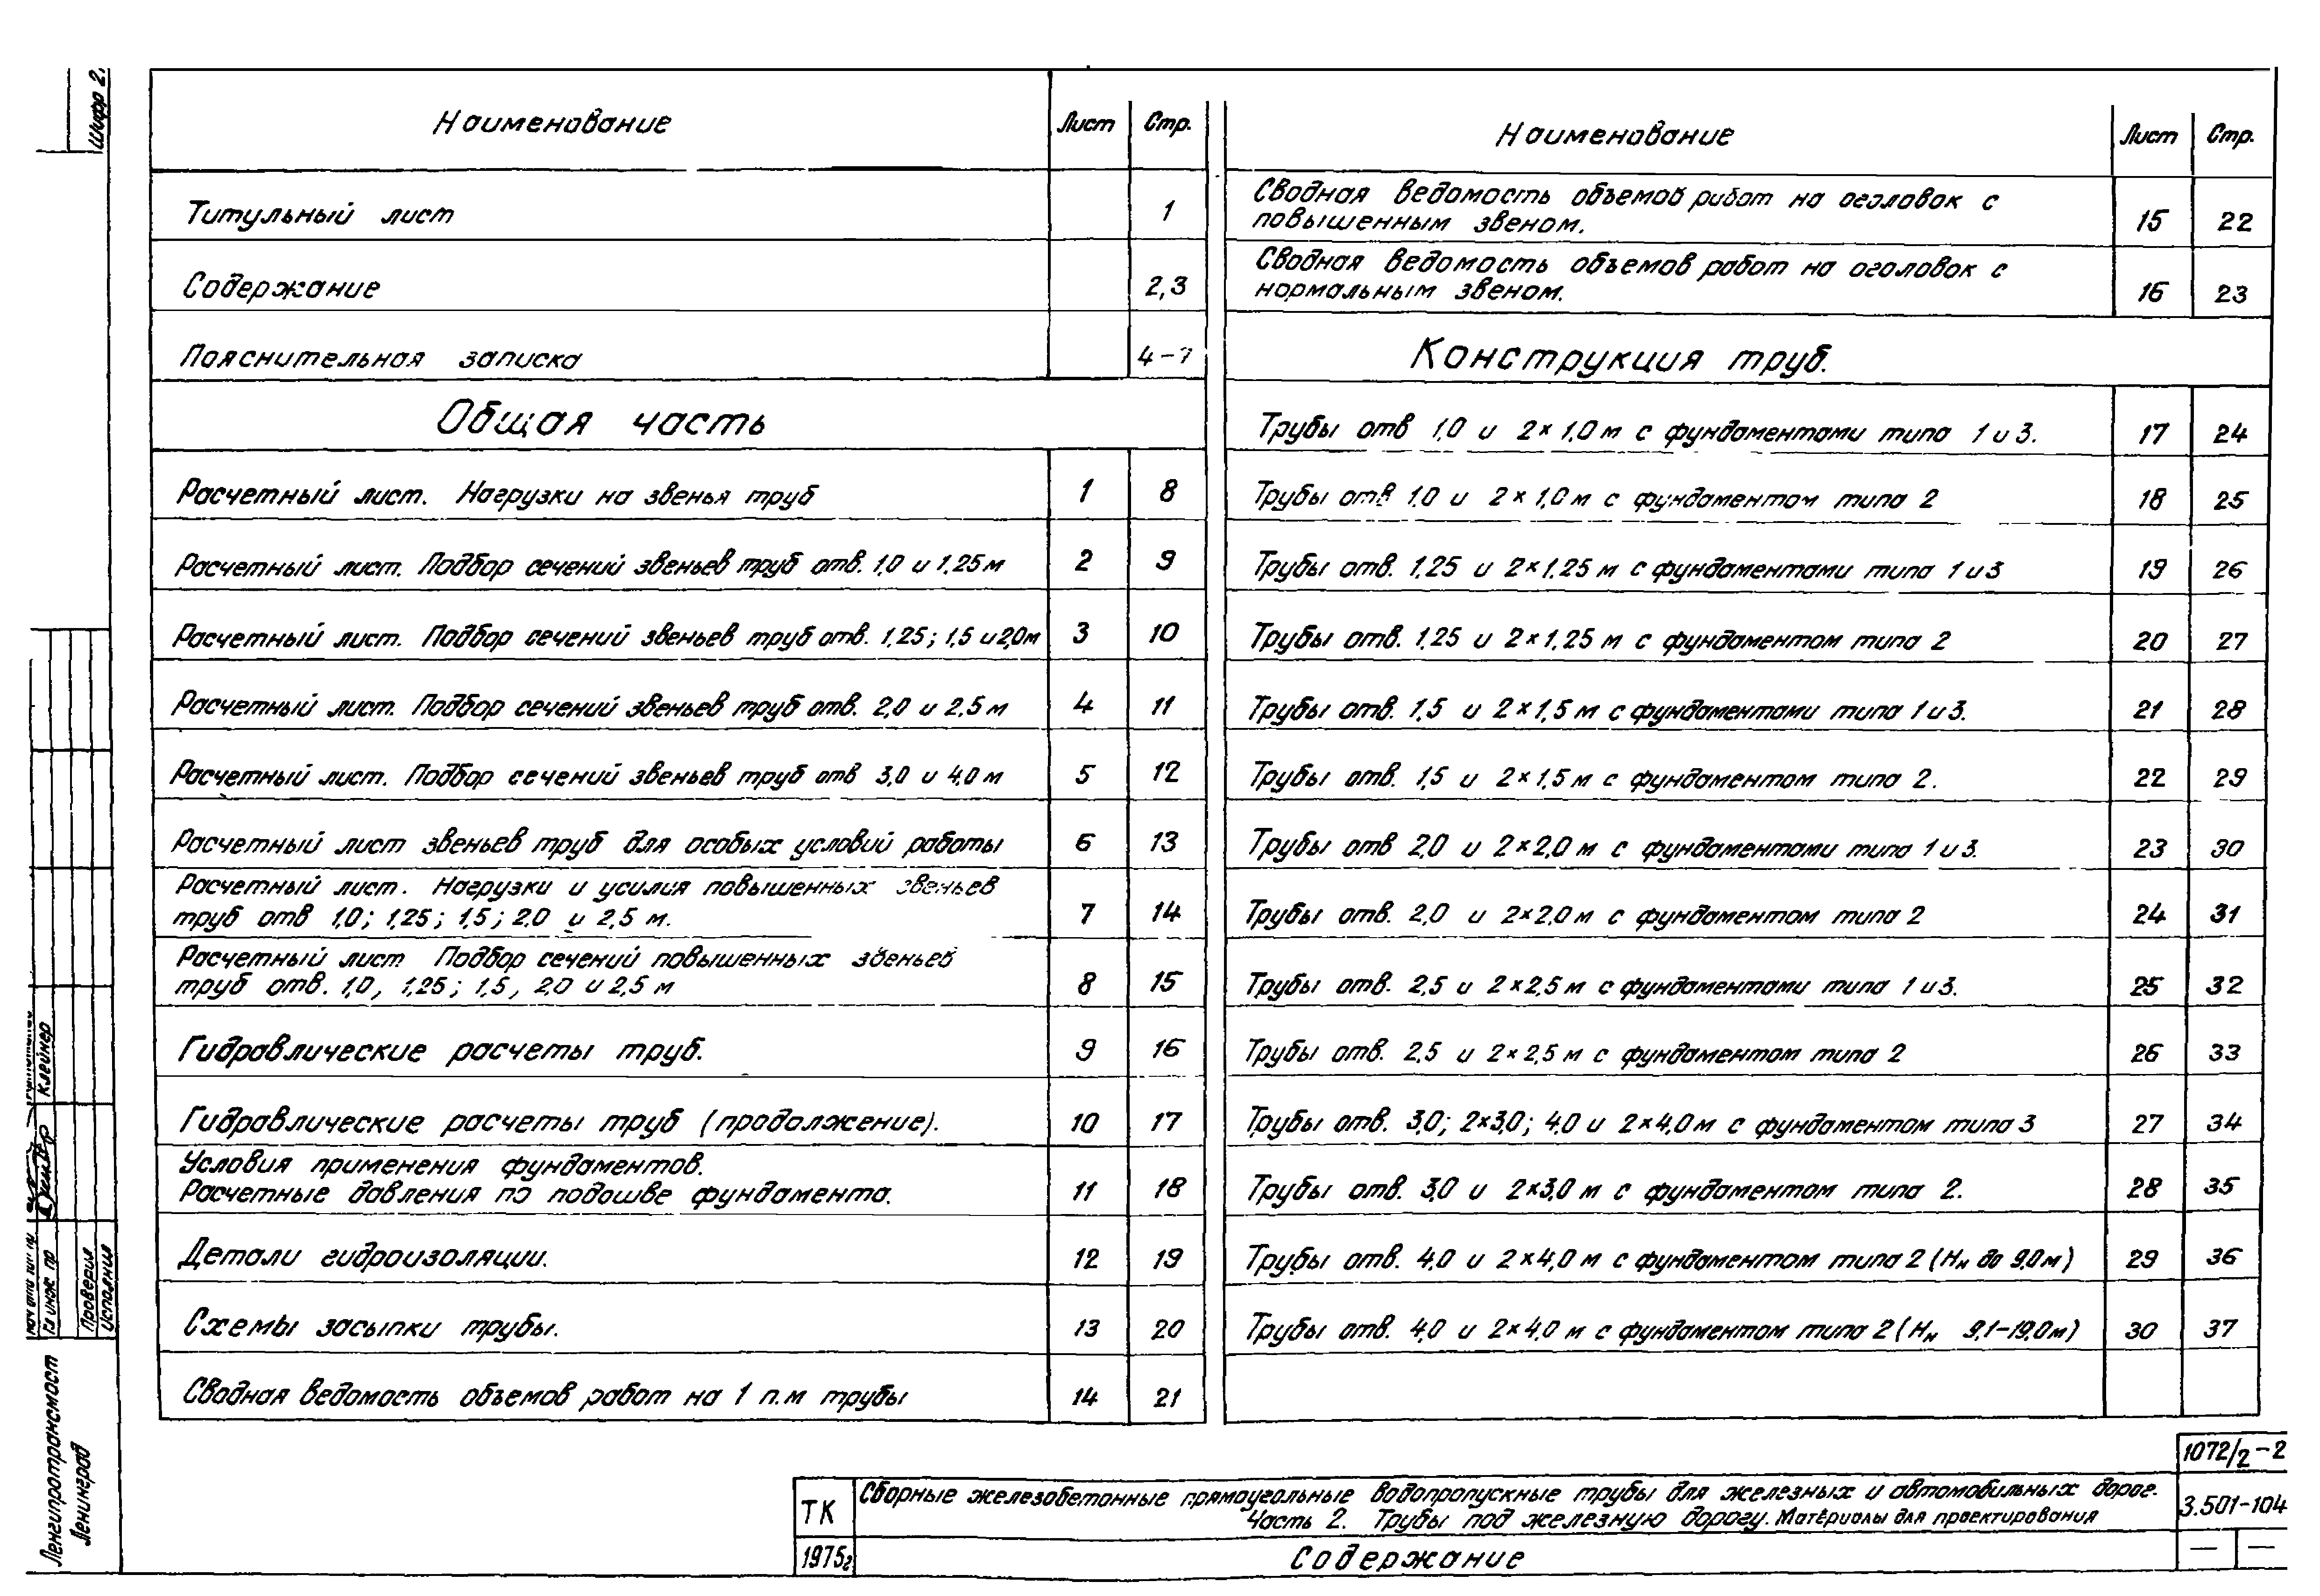 Наименование Лист Стр.
Титульный лист 1
Содержание 2,3
Пояснительная записка 4-7
Общая часть
Расчетный лист. Нагрузки на звенья труб 1 8
Расчетный лист. Подбор сечений звеньев труб отв. 1,0 и 1,25 м 2 9
Расчетный лист. Подбор сечений звеньев труб отв. 1,25; 1,5 и 2,0м 3 10
Расчетный лист. Подбор сечений звеньев труб отв. 2,0 и 2,5 м 4 11
Расчетный лист. Подбор сечений звеньев труб отв 3,0 и 4,0 м 5 12
Расчетный лист звеньев труб для особых условий работы 6 13
Расчетный лист. Нагрузки и усилия повышенных звеньев
труб отв 1,0; 1,25; 1,5; 2,0 и 2,5 м. 7 14
Расчетный лист Подбор сечений повышенных звеньев
труб отв. 1,0, 1,25; 1,5, 2,0 и 2,5 м 8 15
Гидравлические расчеты труб. 9 16
Гидравлические расчеты труб (продолжение). 10 17
Условия применения фундаментов.
Расчетные давления по подошве фундамента. 11 18
Детали гидроизоляции. 12 19
Схемы засыпки трубы. 13 20
Сводная ведомость объемов работ на 1 п.м трубы 14 21
Наименование Лист Стр.
Сводная ведомость объемов работ на оголовок с
повышенным звеном. 15 22
Сводная ведомость объемов работ на оголовок с
нормальным звеном. 16 23
Конструкция труб.
Трубы отв 1,0 и 2×1,0 м с фундаментами типа 1 и 3. 17 24
Трубы отв 1,0 и 2×1,0 м с фундаментом типа 2 18 25
Трубы отв. 1,25 и 2×1,25 м с фундаментами типа 1 и 3 19 26
Трубы отв. 1,25 и 2×1,25 м с фундаментом типа 2 20 27
Трубы отв. 1,5 и 2×1,5 м с фундаментами типа 1 и 3. 21 28
Трубы отв. 1,5 и 2×1,5 м с фундаментом типа 2. 22 29
Трубы отв 2,0 и 2×2,0 м с фундаментами типа 1 и 3. 23 30
Трубы отв. 2,0 и 2×2,0 м с фундаментом типа 2 24 31
Трубы отв. 2,5 и 2×2,5 м с фундаментами типа 1 и 3. 25 32
Трубы отв. 2,5 и 2×2,5 м с фундаментом типа 2 26 33
Трубы отв. 3,0; 2×3,0; 4,0 и 2×4,0 м с фундаментом типа 3 27 34
Трубы отв. 3,0 и 2×3,0 м с фундаментом типа 2. 28 35
Трубы отв. 4,0 и 2×4,0 м с фундаментом типа 2 (Hн до 9,0м) 29 36
Трубы отв. 4,0 и 2×4,0 м с фундаментом типа 2 (Hн 9,1-19,0м) 30 37
1072/2-2
ТК Сборные железобетонные прямоугольные водопропускные трубы для железных и автомобильных дорог.
Часть 2. Трубы под железную дорогу. Материалы для проектирования 3.501-104
1975г Содержание — —
Шифр 2
Клейнер
Гл инж пр
Проверил
Исполнил
Ленгипротрансмост
Ленинград